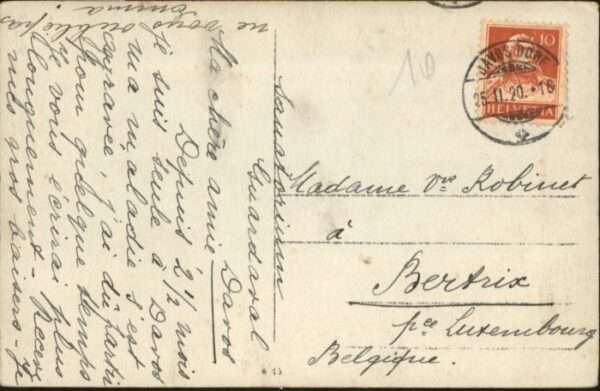 Sanatorium
Guardaval
Davos
Ma chère amie
Depuis 2 1/2 mois
je suis seule à Davos
ma maladie s'est
aggravée, j'ai dû partir
pour quelque temps
je vous écrirai plus
longuement - Recev
mes gros baisers - Je
ne vous oublie pas
Emma
Madame Vve Robinet
à
Bertrix
pce Luxembourg
Belgique.
10
10
DAVOS DORF
25.II.20.-18
HELVETIA